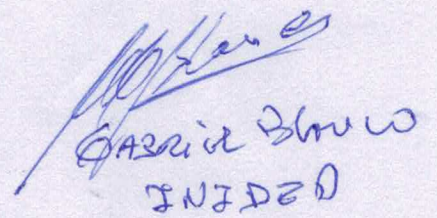 GABRIEL BLANCO
INIDEP